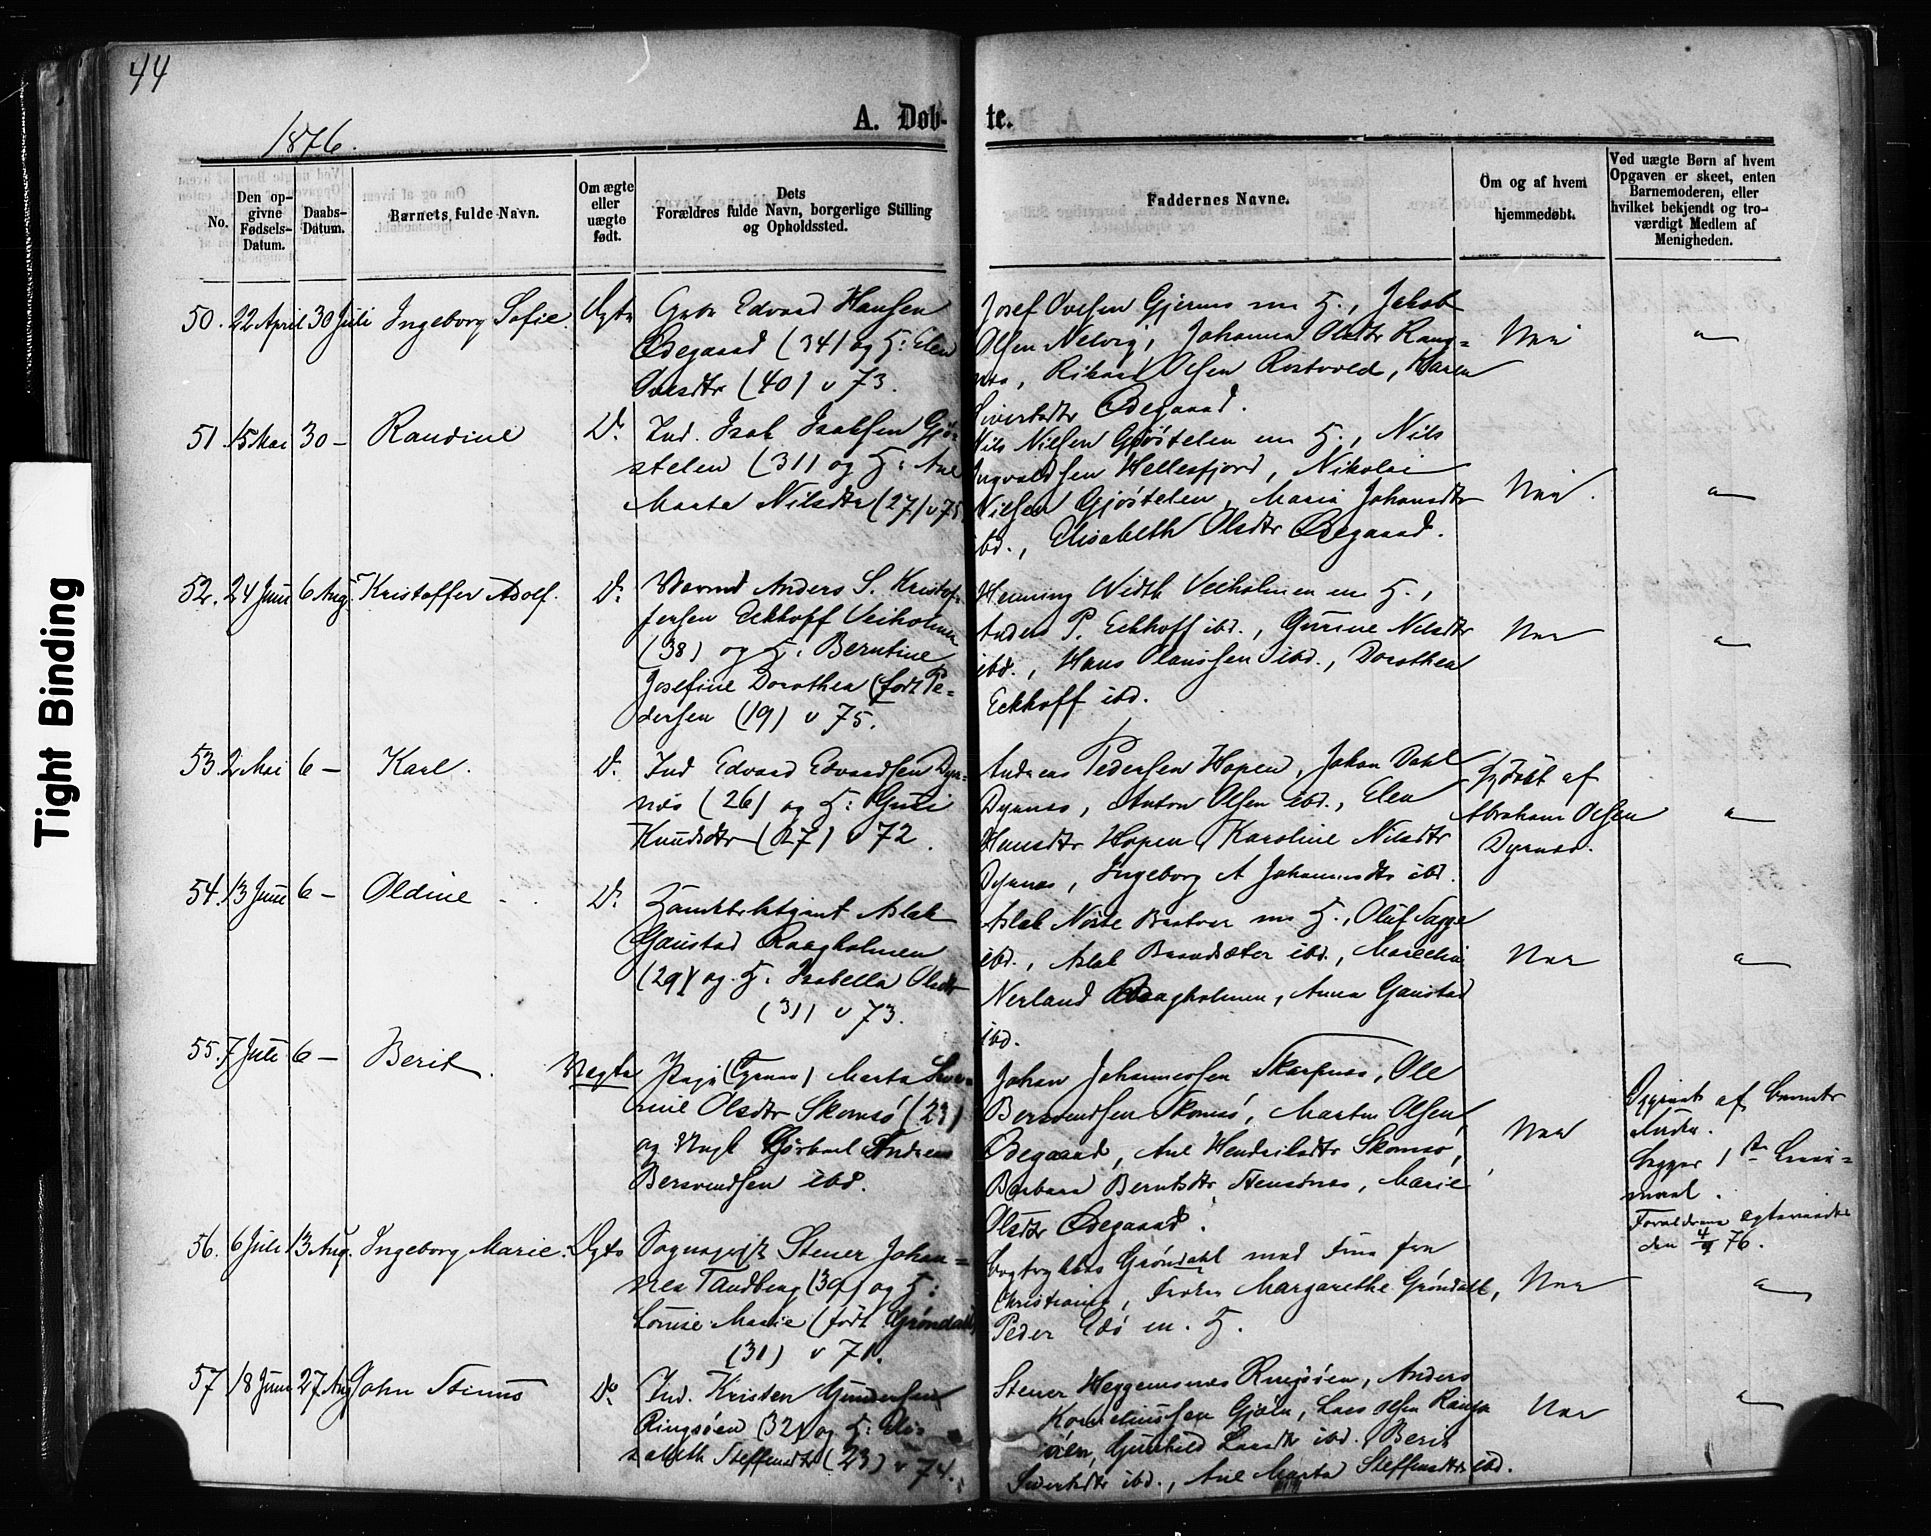 44
A. Døb-te.
1876.
No.
Den opgivne Fødsels-Datum.
Daabs-Datum.
Barnets fulde Navn.
Om ægte eller uægte født.
Dets Forældres fulde Navn, borgerlige Stilling og Opholdssted.
Faddernes Navne.
Om og af hvem hjemmedøbt.
Ved uægte Børn af hvem Opgaven er skeet, enten Barnemoderen, eller hvilket bekjendt og troværdigt Medlem af Menigheden.
Tight Binding
50. 22 April 30 Juli Ingeborg Sofie. Ægte
Edvard Hansen
Ødegaard (34) og H: Elen
Ovesdtr (40) v 73.
Josef Ovesen Gjernes m H., Jakob
Olsen Nelvig, Johanna Olsdtr Rang-
nes, Rikard Olsen Rostvold, Karen
Sivertsdtr Ødegaard.
Nei
"
51. 15 Mai 30 – Randine D.
Ind. Isak Isaksen Gjø-
stelen (31) og H: Ane
Marta Nilsdtr (27) v 75
Nils Nielsen Gjøstelen m H., Nils
Ingvaldsen Hellesfjord, Nikolai
Nielsen Gjøstelen, Maria Johansdtr
ibd., Elisabeth Olsdtr Ødegaard.
Nei.
"
52. 24 Juni 6 Aug. Kristoffer Adolf. D.
Anders S. Kristof-
fersen Eckhoff Veiholmen
(38) og H: Berntine
Josefine Dorothea (født Pe-
dersen (19) v 75.
Henning Width Veiholmen m H.,
Anders P. Eckhoff ibd., Gurine Nilsdtr
ibd., Hans Clausen ibd., Dorothea
Eckhoff ibd.
Nei
"
53. 2 Mai 6 – Karl. D.
Ind Edvard Edvardsen Dyr-
næs (26) og H: Guri
Knudsdtr (27) v 72.
Andreas Pedersen Hopen, Johan Dahl
Dyrnæs, Anton Olsen ibd., Elen
Hansdtr Hopen, Karoline Nilsdtr
Dyrnæs, Ingeborg A Johannesdtr ibd.
Hjdøbt af
Abraham Olsen
Dyrnæs.
"
54. 13 Juni 6 – Oldine D.
Aslak
Gaustad Raagholmen
(29) og H. Isabella Olsdtr
(31) v 73.
Aslak Norse Brattvær m H., Oluf Sagge
ibd., Aslak Brandsæter ibd.,
Nerland Raagholmen, Anna Gaustad
ibd.
Nei
"
55. 7 Juli 6 – Berit. Uægte
Pige (Tyrnes) Marta
Olsdtr Skomsø (23)
og Ungk. Andreas
Bersvendsen ibd.
Johan Johannessen Skarpnes, Ole
Bersvendsen Skomsø, Morten Olsen,
Ødegaard, Ane Hendriksdtr Skomsø,
Barbara Berntsdtr Stensønes, Marie
Olsdtr Ødegaard.
Nei
Opgivet af Barnets
Fader.
Begges 1ste Leier-
maal.
Forældrene ægteviede
den 4/9 76.
56. 6 Juli 13 Aug. Ingeborg Marie. Ægte
Sognepræst Stener Johan-
nes Tandberg (39) og H:
Louise Marie (født Grøndahl)
(31) v 71.
Bogtrykker Grøndahl med Frue fra
Christiania, Frøken Margarethe Grøndahl,
Peder Edø m. H.
Nei
"
57. 18 Juni 27 Aug John Stinus Do
Ind. Kristen Gundersen
Ringsøen (32) og H: Eli-
sabeth Steffensdtr (23) v 74.
Stener Heggemsnes Ringsøen, Anders
Korneliussen Gjøen, Lars Olsen Rings-
øen, Gunhild Larsdtr ibd. Berit
Sivertsdtr ibd., Ane Marta Steffensdtr ibd.
Nei
"